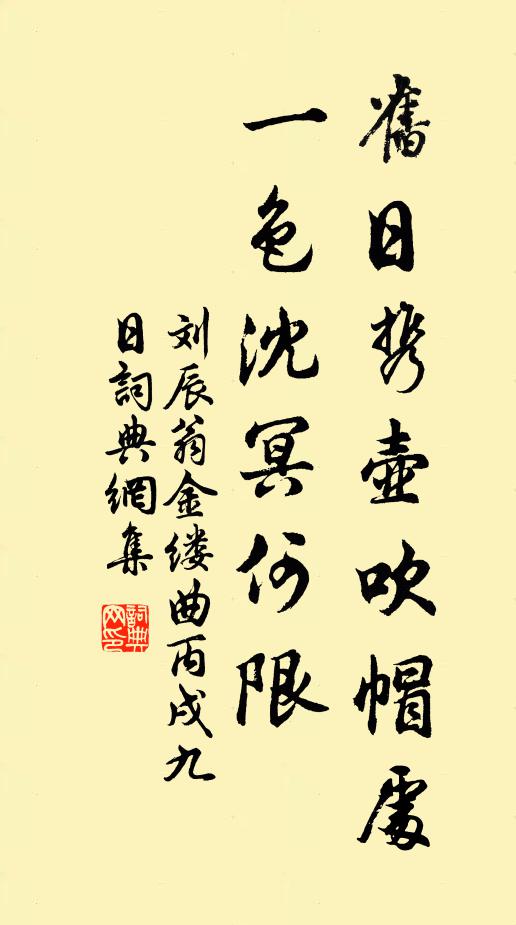 舊日携壺吹帽處
一色沈冥何限
刘辰翁金缕曲丙戌九
日詞典網集
詞典網印